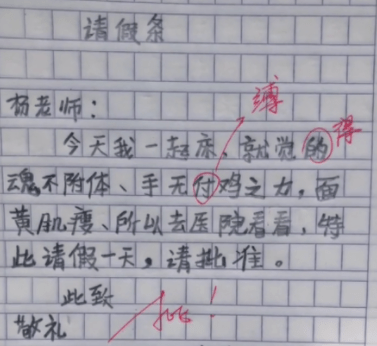 请假条
缚
杨老师：
得
今天我一起床、就觉的
魂不附体、手无付鸡之力，面
黄肌瘦、所以去医院看看，特
此请假一天，请批准。
此致
敬礼